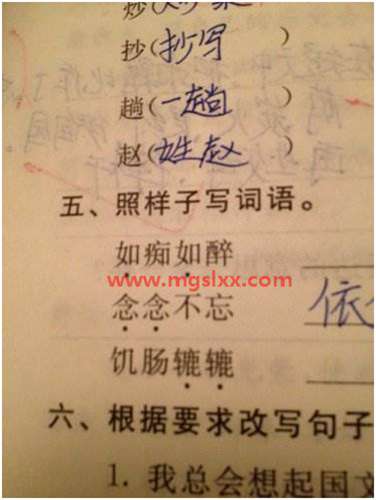 炒(
抄(抄写)
趟(一趟)
赵(姓赵)
五、照样子写词语。
如痴如醉
www.mgslxx.com
念念不忘 依
饥肠辘辘
六、根据要求改写句子
1. 我总会想起国文